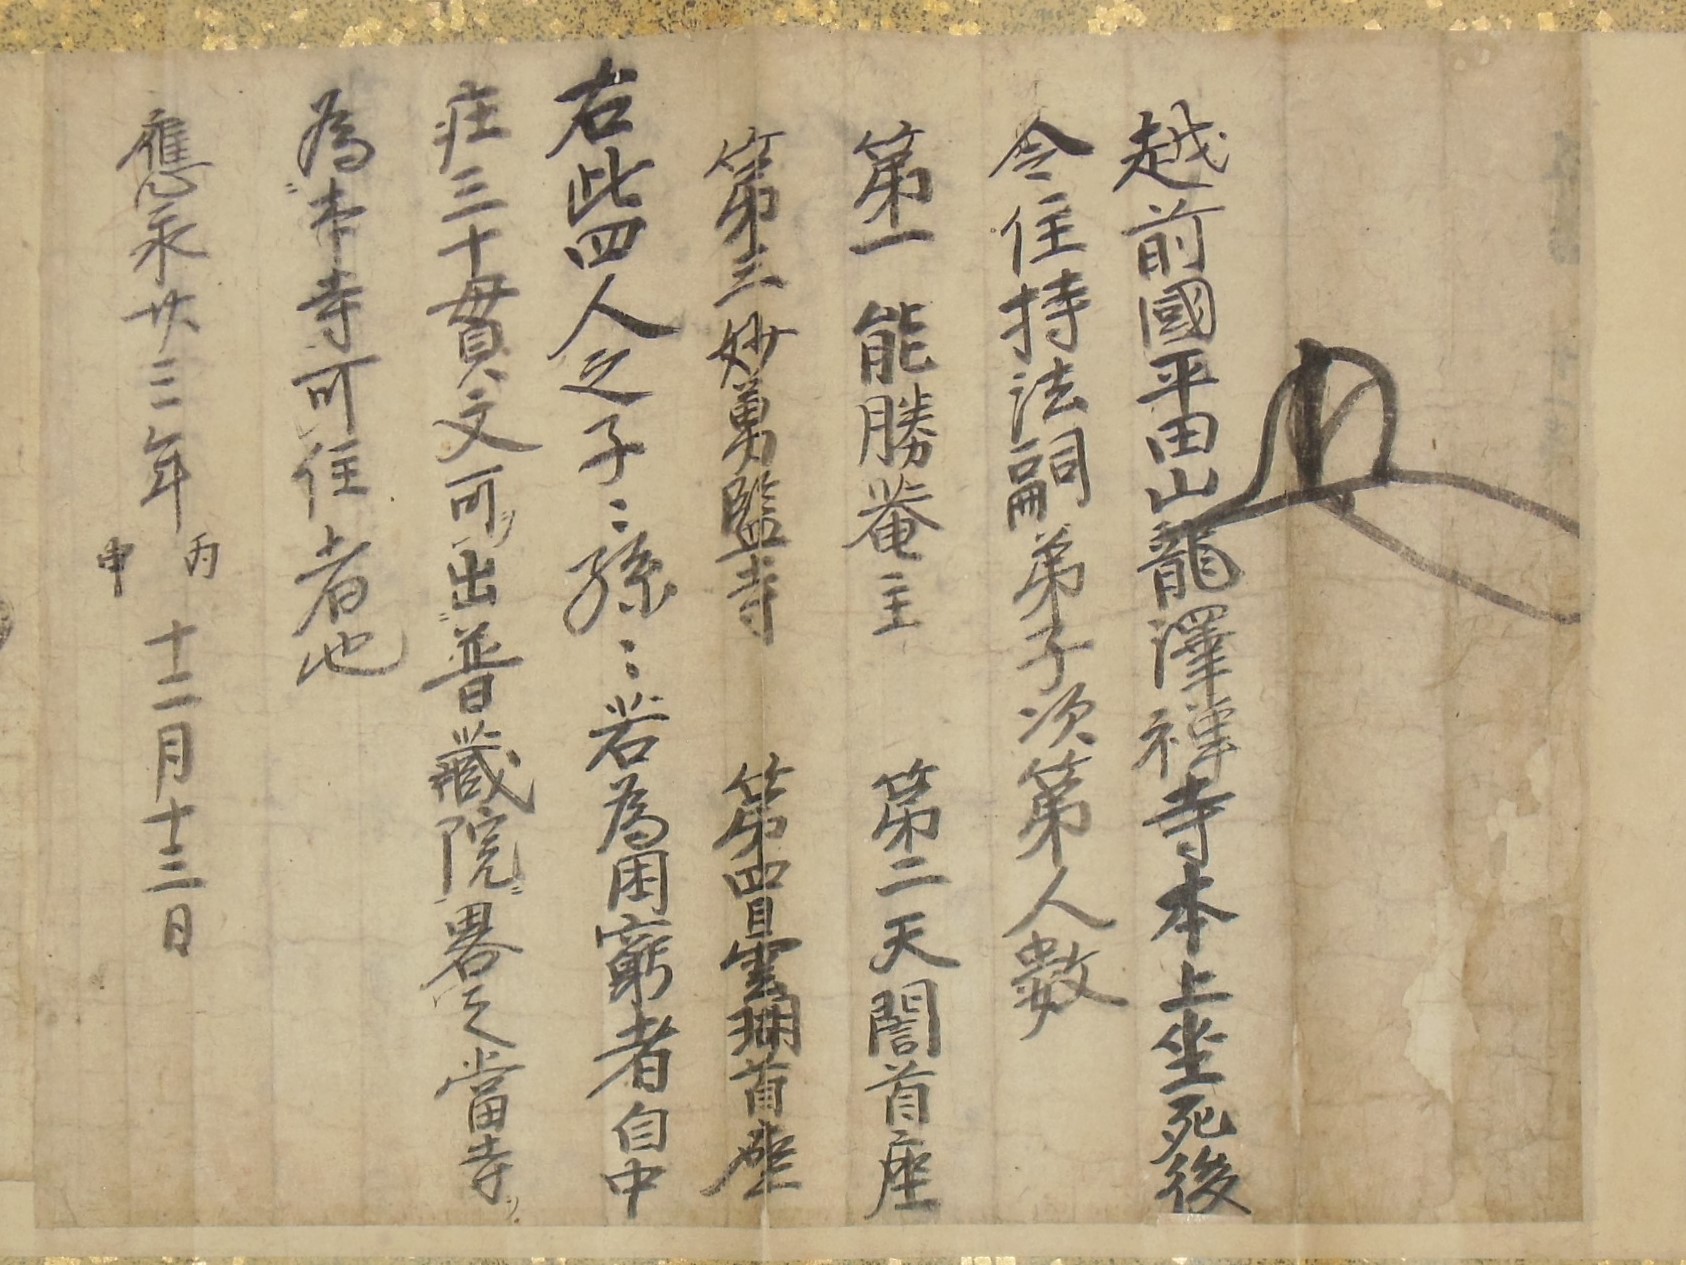 越前國平田山龍澤禅寺本上坐死後
令住持法嗣弟子次第人数
第一 能勝菴主 第二天誾首座
第三妙勇監寺 第四目雲珊首座
右此四人之子〻孫〻若為困窮者自中
庄三十貫文可出普蔵院畧之當寺
為本寺可住者也
應永廿三年丙申十二月十三日